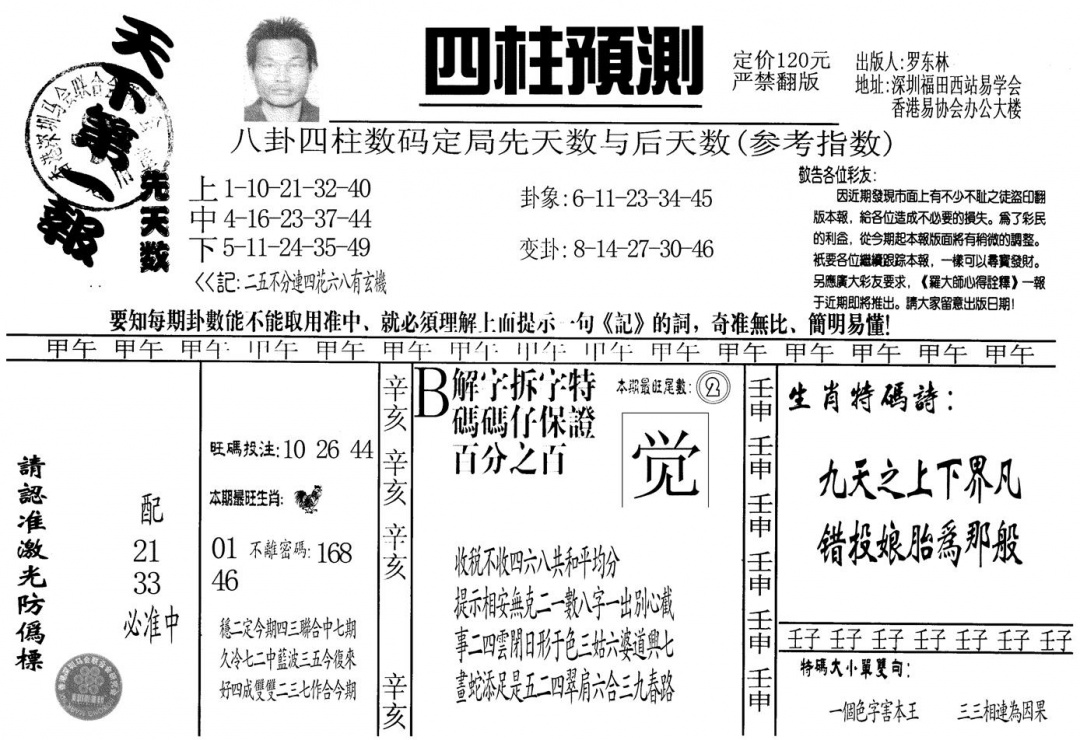 天下第一報
香港深圳马会联合会
四柱預測
定价120元
严禁翻版
出版人:罗东林
地址:深圳福田西站易学会
香港易协会办公大楼
八卦四柱数码定局先天数与后天数(参考指数)
先天数
上 1-10-21-32-40
中 4-16-23-37-44
下 5-11-24-35-49
<<記:二五不分連四花六八有玄機
卦象:6-11-23-34-45
变卦:8-14-27-30-46
敬告各位彩友:
因近期發現市面上有不少不耻之徒盜印翻
版本報,給各位造成不必要的損失。爲了彩民
的利益,從今期起本報版面將有稍微的調整。
衹要各位繼續跟踪本報,一樣可以尋寶發財。
另應廣大彩友要求,《羅大師心得詮釋》一報
于近期即將推出。請大家留意出版日期!
要知每期卦數能不能取用准中、就必須理解上面提示一句《記》的詞,奇准無比、簡明易懂!
甲午 甲午 甲午 甲午 甲午 甲午 甲午 甲午 甲午 甲午 甲午 甲午 甲午 甲午 甲午
請認准激光防僞標
配
21
33
必准中
旺碼投注:10 26 44
本期最旺生肖:
01 不離密碼:168
46
穩二定今期四三聯合中七期
久冷七二中藍波三五今復來
好四成雙雙二三七作合今期
辛亥 辛亥 辛亥 辛亥
B解字拆字特
碼碼仔保證
百分之百
本期最旺尾數:2
觉
收税不收四六八共和平均分
提示相安無克二一數八字一出别心截
事二四雲閉日形于色三姑六婆道興七
畫蛇添足是五二四翠肩六合三九春路
壬申 壬申 壬申 壬申 壬申 壬申
生肖特碼詩:
九天之上下界凡
错投娘胎爲那般
壬子 壬子 壬子 壬子 壬子 壬子 壬子
特碼大小單雙句:
一個色字害本王 三三相連為因果